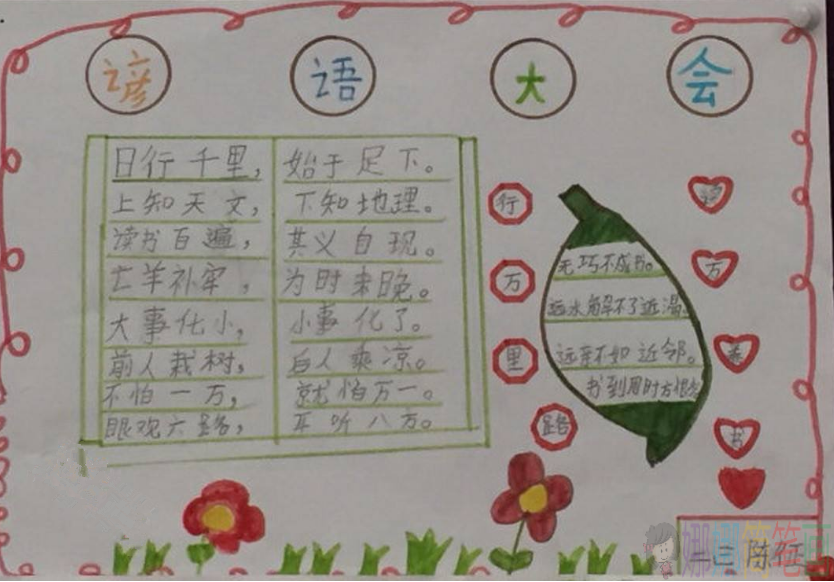 谚语大会
日行千里，始于足下。
上知天文，下知地理。
读书百遍，其义自现。
亡羊补牢，为时未晚。
大事化小，小事化了。
前人栽树，后人乘凉。
不怕一万，就怕万一。
眼观六路，耳听八方。
行
万
里
路
无巧不成书。
远水解不了近渴。
远亲不如近邻。
书到用时方恨少
读
万
卷
书
娜娜简笔画
陈